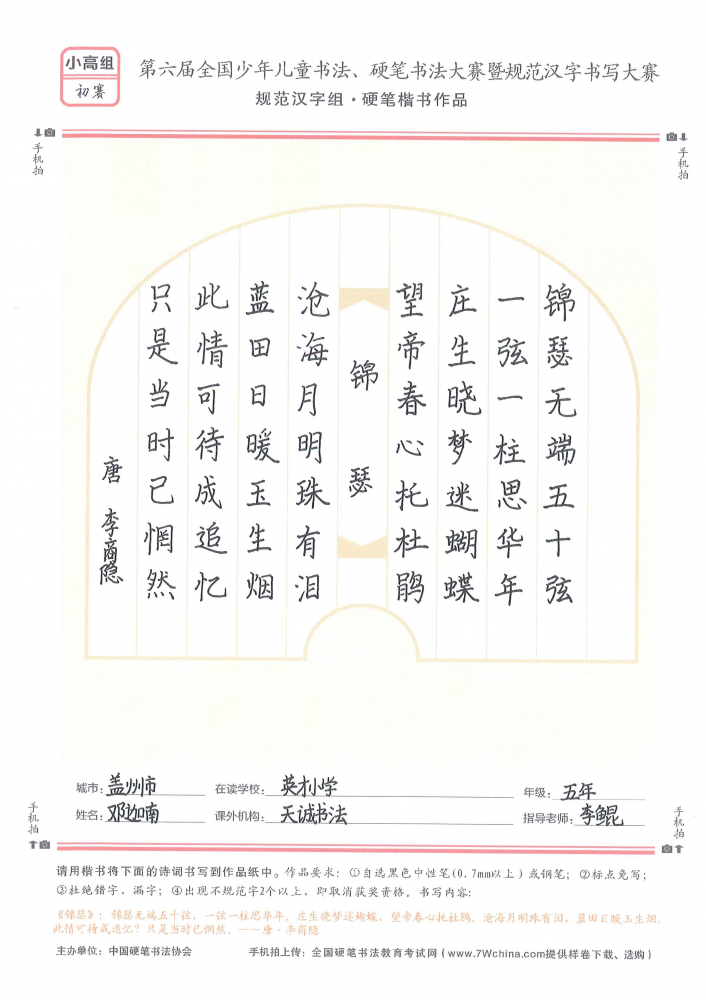 小高组
初赛
第六届全国少年儿童书法、硬笔书法大赛暨规范汉字书写大赛
规范汉字组·硬笔楷书作品
手机拍
手机拍
锦瑟无端五十弦
一弦一柱思华年
庄生晓梦迷蝴蝶
望帝春心托杜鹃
锦瑟
沧海月明珠有泪
蓝田日暖玉生烟
此情可待成追忆
只是当时已惘然
唐 李商隐
城市：盖州市 在读学校：英才小学 年级：五年
姓名：邓迦南 课外机构：天诚书法 指导老师：李鲲
手机拍
手机拍
请用楷书将下面的诗词书写到作品纸中。作品要求：①自选黑色中性笔(0.7mm以上)或钢笔；②标点免写；
③杜绝错字、漏字；④出现不规范字2个以上，即取消获奖资格。书写内容：
《锦瑟》：锦瑟无端五十弦，一弦一柱思华年。庄生晓梦迷蝴蝶，望帝春心托杜鹃。沧海月明珠有泪，蓝田日暖玉生烟。
此情可待成追忆？只是当时已惘然。——唐·李商隐
主办单位：中国硬笔书法协会 手机拍上传：全国硬笔书法教育考试网（www.7Wchina.com提供样卷下载、选购）